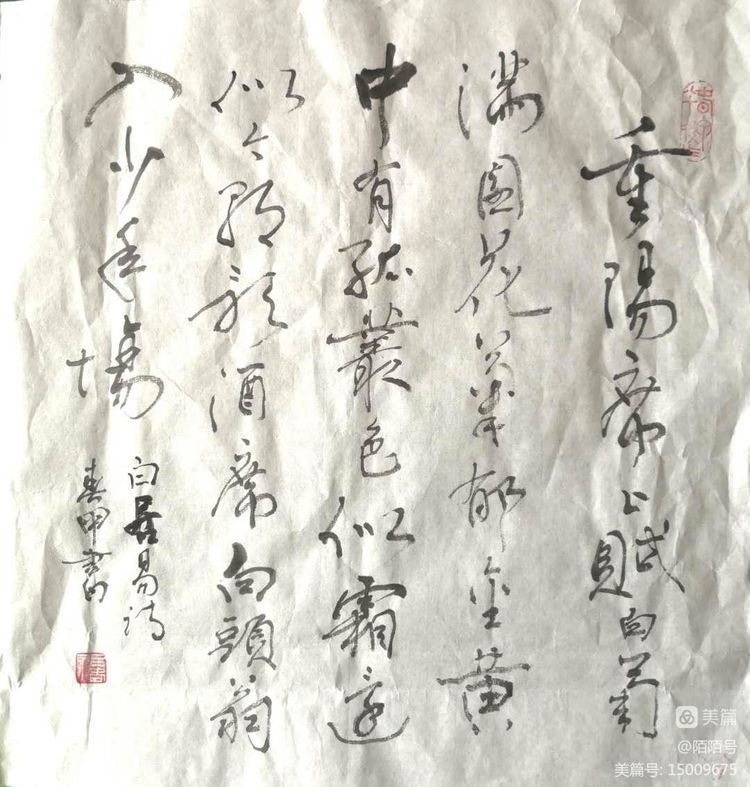 重陽席上賦白菊
滿園花菊郁金黄
中有孤叢色似霜還
似今朝歌酒席白頭翁
入少年場
白居易詩
甲書
美篇
@陌陌号
美篇号: 15009675